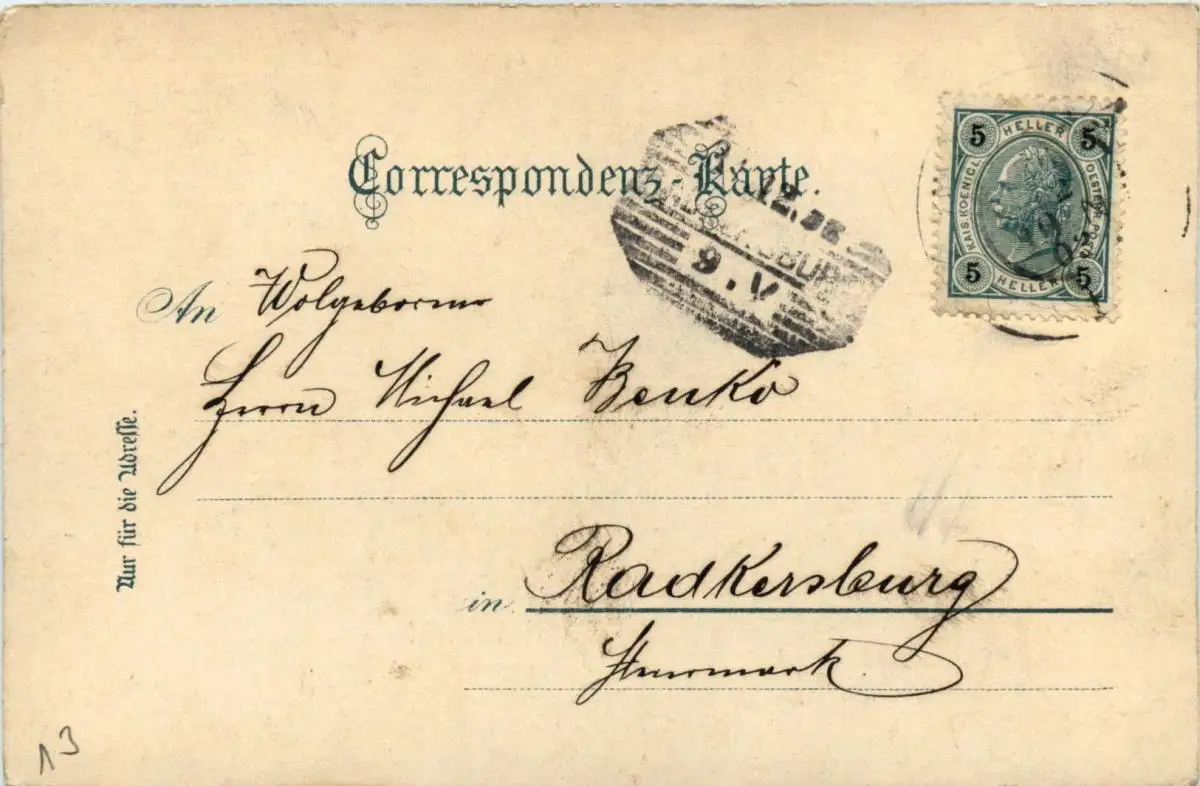 Correspondenz-Karte.
5 HELLER 5
KAIS. KOENIGL. OESTERR. POST
5 HELLER 5
12.
9. V
An Wolgeboren
Herrn Michael Benko
Nur für die Adresse.
in Radkersburg
Steiermark
13